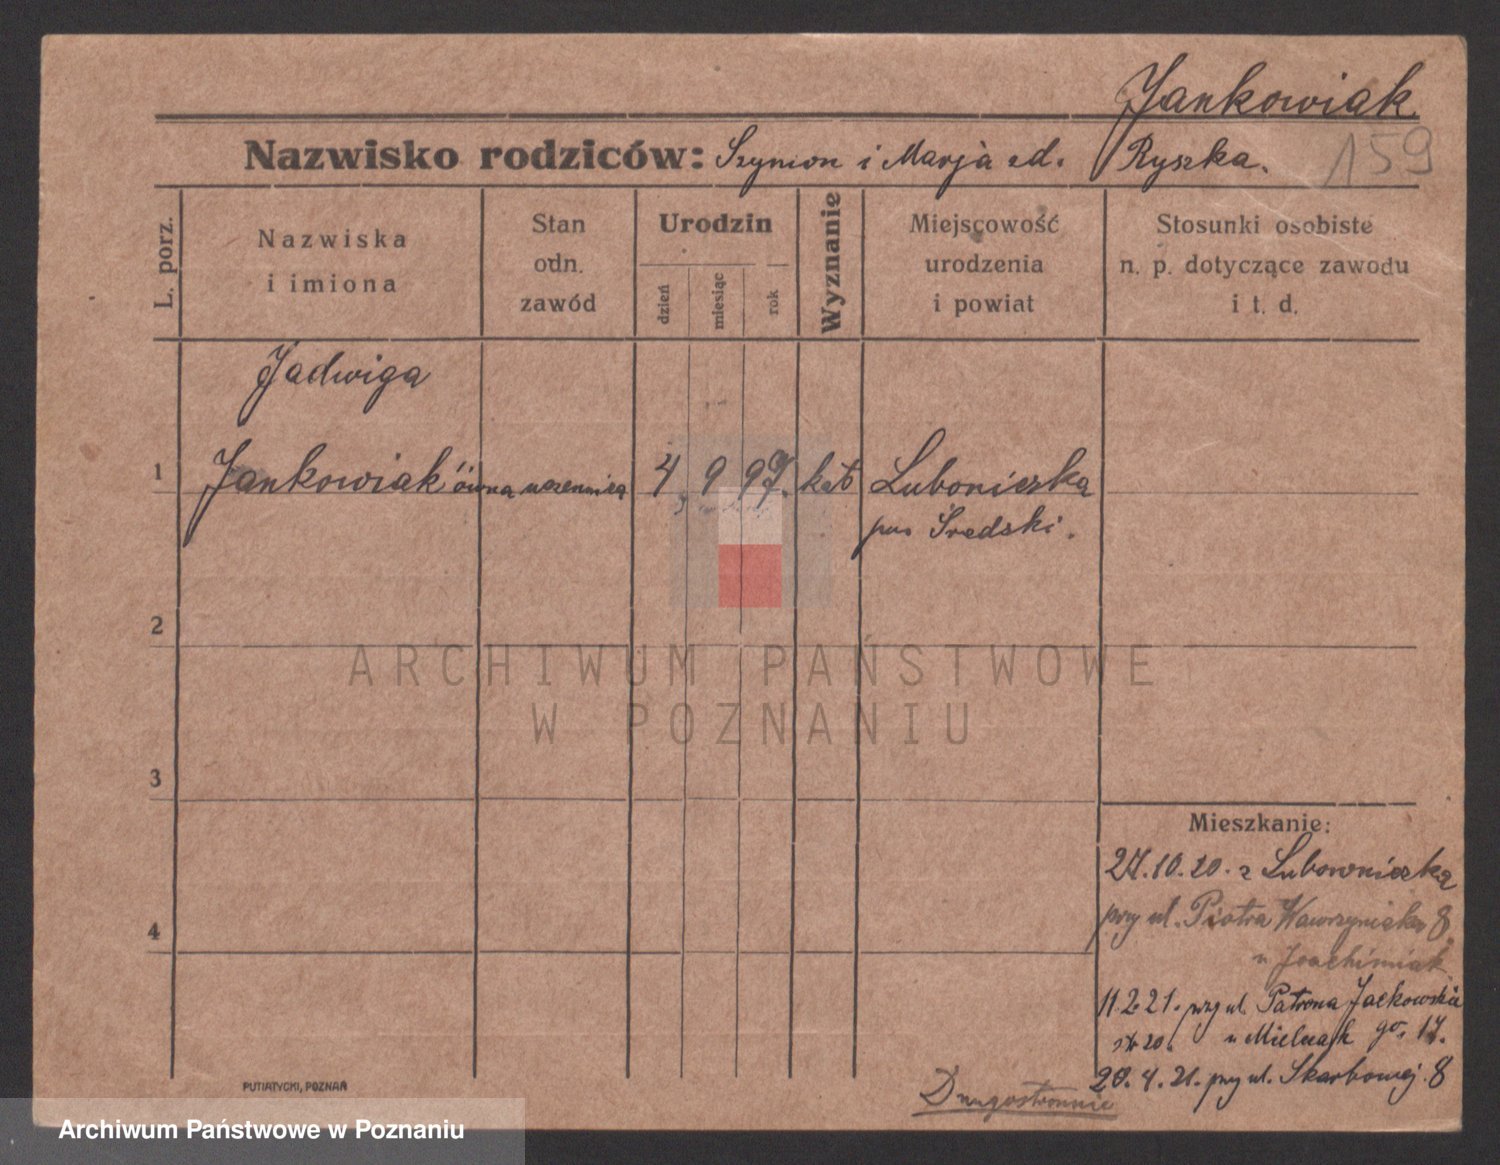 Jankowiak
159
Nazwisko rodziców: Szymon i Marja zd. Ryszka.
L. porz.
Nazwiska
i imiona
Stan
odn.
zawód
Urodzin
dzień
miesiąc
rok
Wyznanie
Miejscowość
urodzenia
i powiat
Stosunki osobiste
n. p. dotyczące zawodu
i t. d.
Jadwiga
1 Jankowiak'ówna uczennica 4 9 97. kat Luboniczka
pow Średski.
2
ARCHIWUM PAŃSTWOWE
W POZNANIU
3
Mieszkanie:
27.10.20. z Lubowniczka
przy ul. Piotra Wawrzyniaka 8
u Joachimiak
4
11.2.21. przy ul. Patrona Jackowskie
go. 17.
u Mielcack
20.4.21. przy ul. Skarbowej 8
Drugostronnie
PUTIATYCKI, POZNAŃ
Archiwum Państwowe w Poznaniu